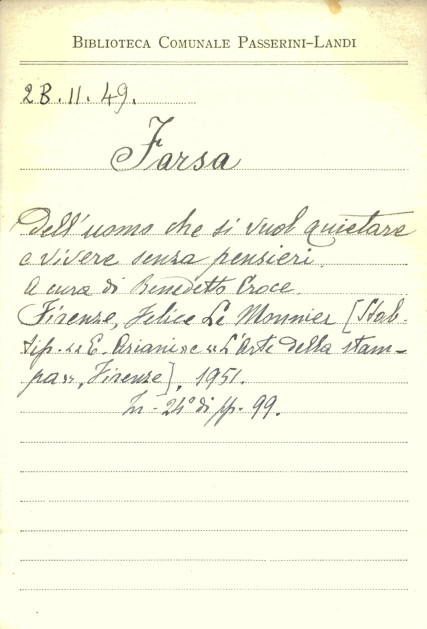 BIBLIOTECA COMUNALE PASSERINI-LANDI
2B.II.49.
Farsa
Dell'uomo che si vuol quietare
e vivere senza pensieri.
A cura di Benedetto Croce.
Firenze, Felice Le Monnier [Stab.
tip. «E. Ariani» e «L'Arte della stam-
pa», Firenze], 1951.
In-24° di pp. 99.